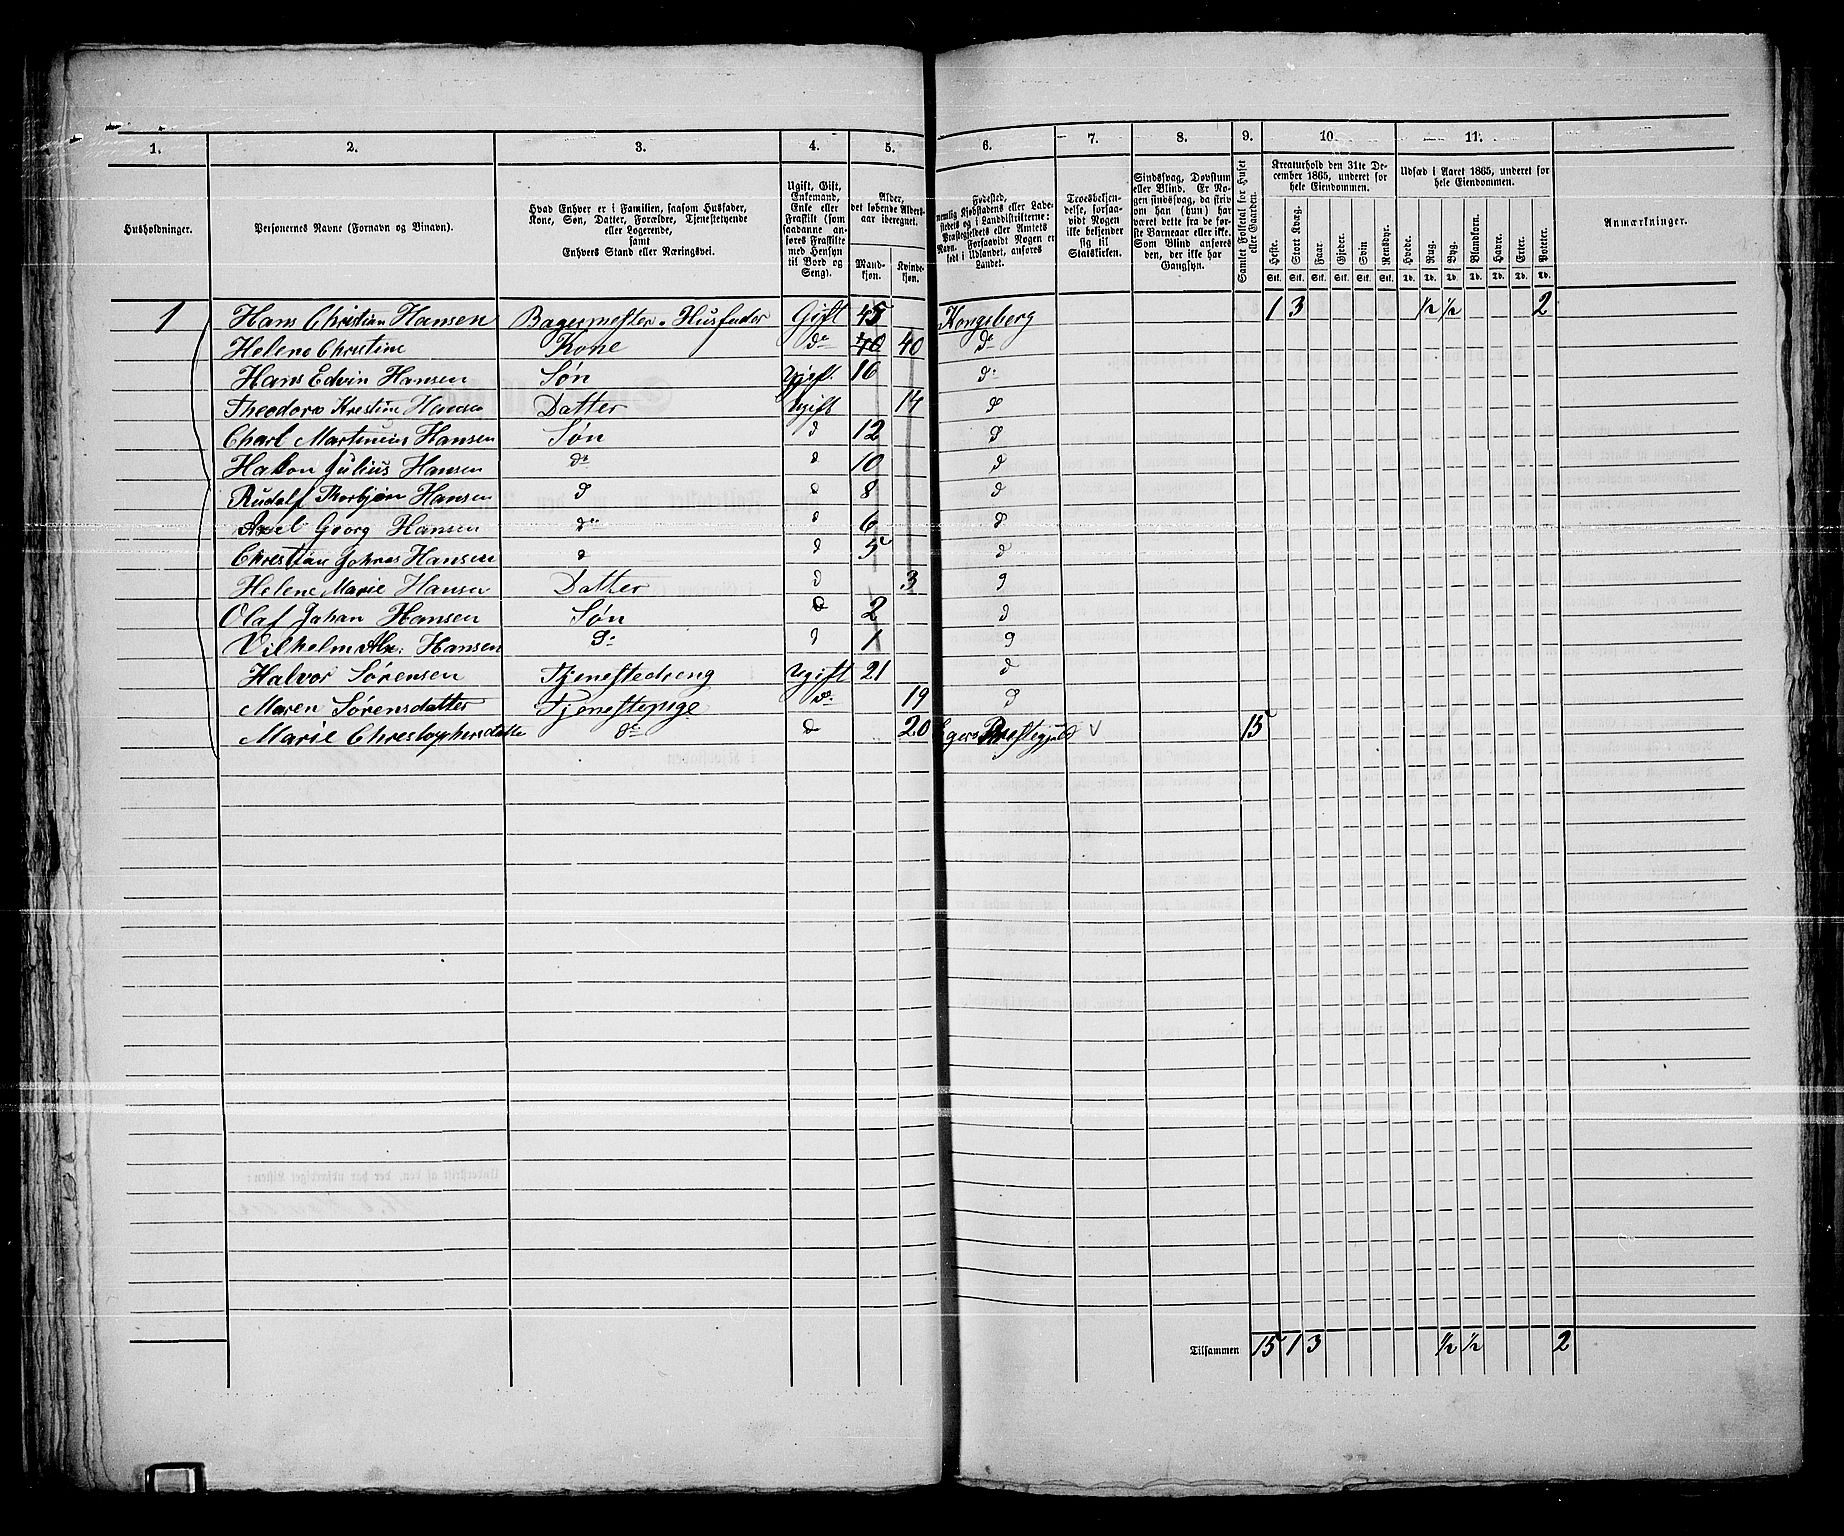 1. 2. 3. 4. 5. 6. 7. 8. 9. 10. 11.
Husholdninger.
Personernes Navne (Fornavn og Binavn).
Hvad Enhver er i Familien, saasom Husfader,
Kone, Søn, Datter, Forældre, Tjenestetyende
eller Logerende,
samt
Enhvers Stand eller Næringsvei.
Ugift, Gift,
Enkemand,
Enke eller
Fraskilt (som
saadanne an-
føres Fraskilte
med Hensyn
til Bord og
Seng).
Alder,
det løbende Alders-
aar iberegnet.
Mand-
kjøn.
Kvinde-
kjøn.
Fødested,
nemlig Kjøbstadens eller Lade-
stedets og i Landdistrikterne:
Præstegjeldets eller Amtets
Navn. Forsaavidt Nogen er
født i Udlandet, anføres
Landet.
Troesbekjen-
delse, forsaa-
vidt Nogen
ikke bekjender
sig til
Statskirken.
Sindssvag, Døvstum
eller Blind. Er No-
gen sindssvag, da skriv
om han (hun) har
været dette fra de før-
ste Barneaar eller ikke.
Som Blind anføres
den, der ikke har
Gangsyn.
Samlet Folketal for Huset
eller Gaarden.
Kreaturhold den 31te De-
cember 1865, underet for
hele Eiendommen.
Heste. Stort Kvæg. Faar. Gjeder. Svin Rensdyr.
Stk. Stk. Stk. Stk. Stk. Stk.
Udsæd i Aaret 1865, underet for
hele Eiendommen.
Hvede. Rug. Byg. Blandkorn. Havre. Erter. Poteter.
Td. Td. Td. Td. Td. Td. Td.
Anmærkninger.
1 Hans Christian Hansen Bagermester Husfader Gift 45 Kongsberg 1 3 1/2 1/2 2
Helene Christine Kone do 40 40 do
Hans Edvin Hansen Søn Ugift 16 do
Theodora Krestine Hansen Datter Ugift 14 d
Charl Martinius Hansen Søn d 12 d
Hakon Julius Hansen do d 10 d
Rudolf Thorbjøn Hansen d d 8 d
Axel Georg Hansen do d 6 d
Christian Johnas Hansen d d 5 d
Helene Marie Hansen Datter d 3 d
Olaf Johan Hansen Søn d 2 d
Vilhelm Alx: Hansen do d 1 d
Halvor Sørensen Tjenestedreng Ugift 21 d
Maren Sørensdatter Tjenestepige do 19 d
Marie Christophersdatte do d 20 Egers Prestegjeld V 15
Tilsammen 15 1 3 1/2 1/2 2